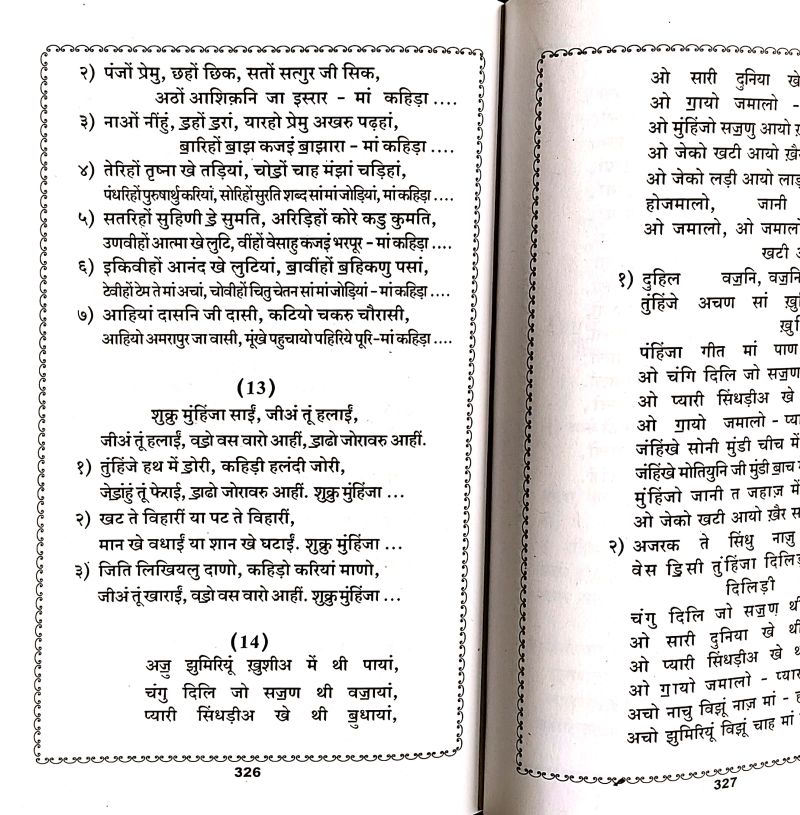 २) पंजों प्रेमु, छहों छिक, सतों सत्गुर जी सिक,
अठों आशिक़नि जा इस्रार - मां कहिड़ा ....
३) नाओं नींहुं, ॾहों ॾरां, यारहो प्रेमु अखरु पढ़हां,
ॿारिहों ॿाझ कजइं ॿाझारा - मां कहिड़ा ....
४) तेरिहों तृष्ना खे तड़ियां, चोॾों चाह मंझां चड़िहां,
पंधरिहों पुरुषार्थु करियां, सोरिहों सुरति शब्द सां मां जोड़ियां, मां कहिड़ा ....
५) सतरिहों सुहिणी ॾे सुमति, अरिड़िहों कोरे कडु कुमति,
उणवीहों आत्मा खे लुटि, वींहों वेसाहु कजइं भरपूर - मां कहिड़ा ....
६) इकिवीहों आनंद खे लुटियां, ॿावींहों ॿहिकणु पसां,
टेवीहों टेम ते मां अचां, चोवीहों चितु चेतन सां मां जोड़ियां - मां कहिड़ा ....
७) आहियां दासनि जी दासी, कटियो चकरु चौरासी,
आहियो अमरापुर जा वासी, मूंखे पहुचायो पहिरिये पूरि - मां कहिड़ा ....
(13)
शुक्रु मुंहिंजा साईं, जीअं तूं हलाईं,
जीअं तूं हलाईं, वॾो वस वारो आहीं, ॾाढो जोरावरु आहीं.
१) तुंहिंजे हथ में ॾोरी, कहिड़ी हलंदी जोरी,
जेॾांहुं तूं फेराईं, ॾाढो जोरावरु आहीं. शुक्रु मुंहिंजा ...
२) खट ते विहारीं या पट ते विहारीं,
मान खे वधाईं या शान खे घटाईं. शुक्रु मुंहिंजा ...
३) जिति लिखियलु दाणो, कहिड़ो करियां माणो,
जीअं तूं खाराईं, वॾो वस वारो आहीं. शुक्रु मुंहिंजा ...
(14)
अॼु झुमिरियूं ख़ुशीअ में थी पायां,
चंगु दिलि जो सॼण थी वॼायां,
प्यारी सिंधड़ीअ खे थी ॿुधायां,
326
ओ सारी दुनिया खे
ओ ॻायो जमालो -
ओ मुंहिंजो सॼणु आयो
ओ जेको खटी आयो
ओ जेको लड़ी आयो
होजमालो, जानी
ओ जमालो, ओ
खटी
१) दुहिल वॼनि,
तुंहिंजे अचण सां
पंहिंजा गीत मां पाण
ओ चंगि दिलि जो
ओ प्यारी सिंधड़ीअ खे
ओ ॻायो जमालो -
जंहिंखे सोनी मुंडी चीच में
जंहिंखे मोतियुनि जी मुंडी
मुंहिंजो जानी त जहाज़ में
ओ जेको खटी आयो ख़ैर
२) अजरक ते सिंधु नाज़ु
वेस ॾिसी तुंहिंजा
दिलिड़ी
चंगु दिलि जो सॼण
ओ सारी दुनिया खे
ओ प्यारी सिंधड़ीअ खे
ओ ॻायो जमालो -
अचो नाचु विझूं नाज़ मां -
अचो झुमिरियूं विझूं चाह मां
327